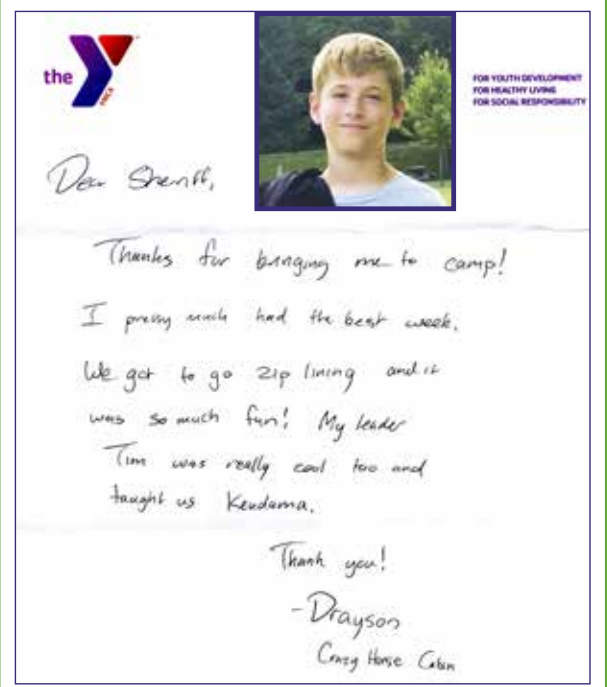 the
YMCA
FOR YOUTH DEVELOPMENT
FOR HEALTHY LIVING
FOR SOCIAL RESPONSIBILITY
Dear Sheriff,
Thanks for bringing me to camp!
I pretty much had the best week.
We got to go zip lining and it
was so much fun! My leader
Tim was really cool too and
taught us Kendama.
Thank you!
-Drayson
Crazy Horse Cabin